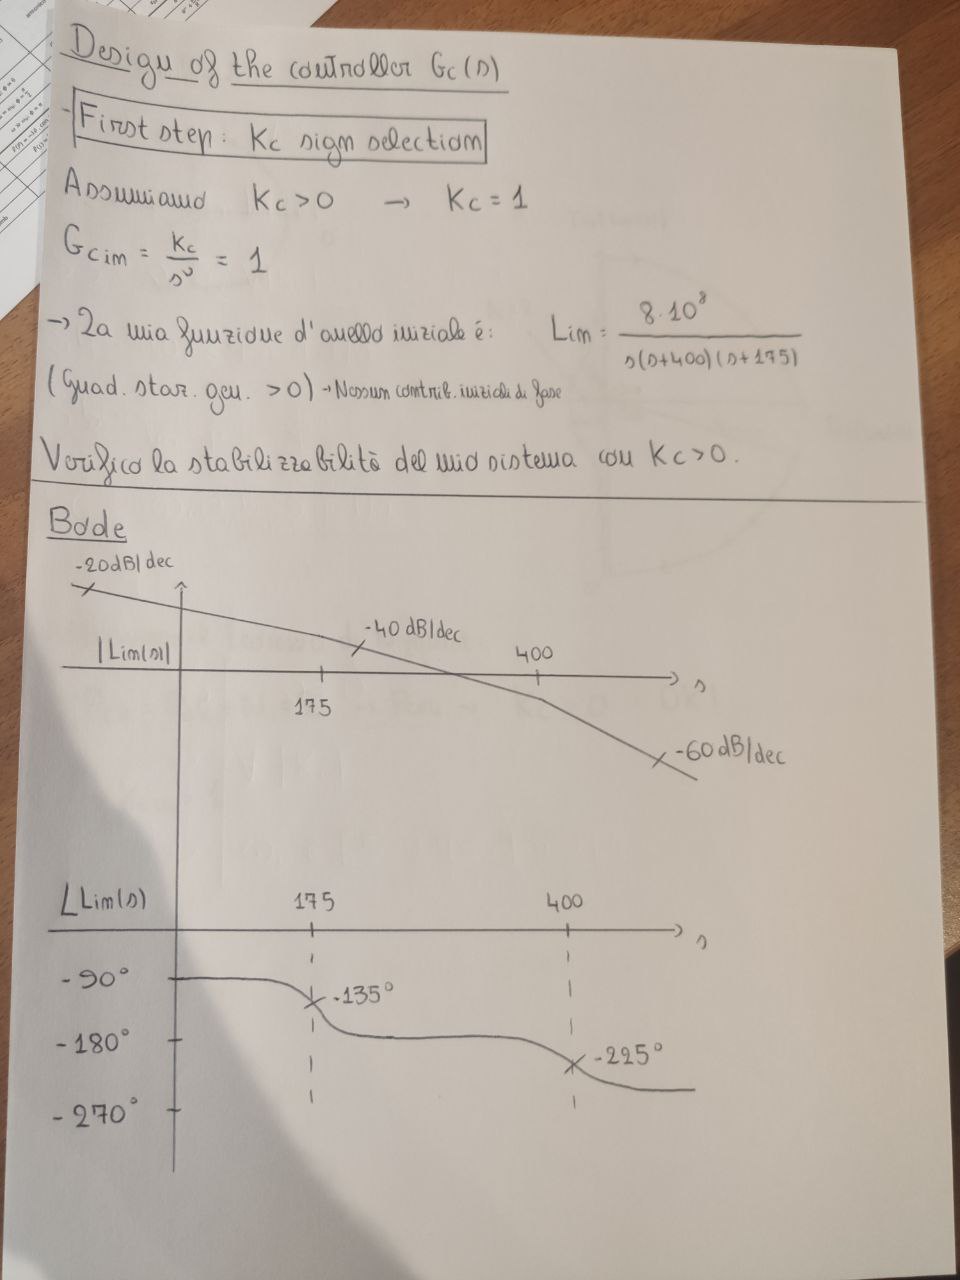 Design of the controller Gc(s)
- First step: Kc sign selection
Assumiamo Kc > 0 → Kc = 1
Gcin = Kc / s^ν = 1
→ La mia funzione d'anello iniziale é: Lin = 8·10⁸ / s(s+400)(s+175)
(Guad. staz. gen. > 0) → Nessun contrib. iniziale di fase
Verifico la stabilizzabilità del mio sistema con Kc > 0.
Bode
-20dB/dec
-40dB/dec
|Lin(s)|
400
s
175
-60dB/dec
∠Lin(s)
175
400
s
-90°
-135°
-180°
-225°
-270°